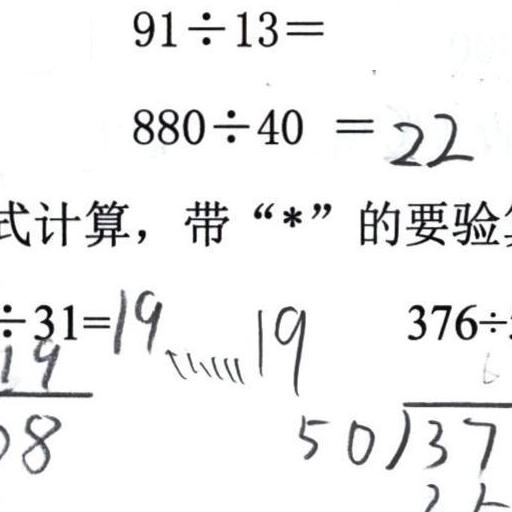 91÷13=
880÷40 =22
式计算，带“*”的要验
÷31=19……19 376÷
19
8 50)37